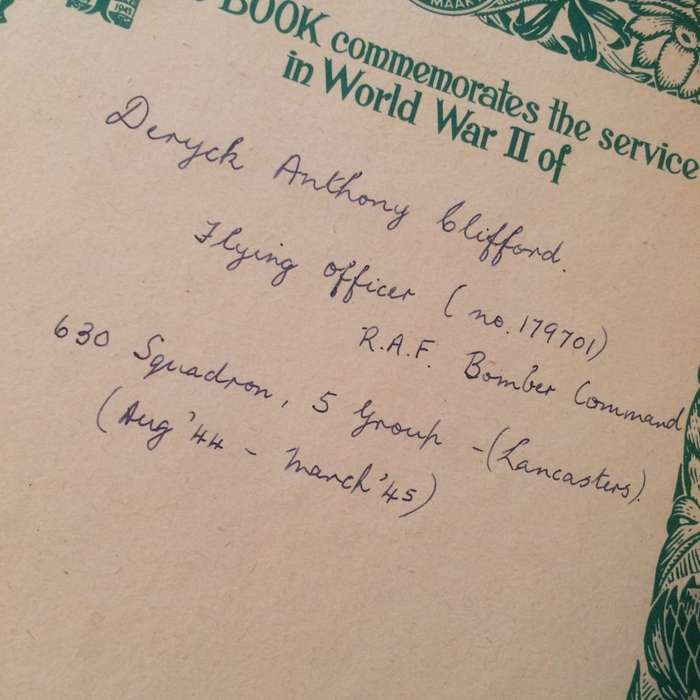 BOOK commemorates the service
in World War II of
Deryck Anthony Clifford.
Flying Officer (no. 179701)
R.A.F. Bomber Command
630 Squadron, 5 Group - (Lancasters).
(Aug '44 - March '45)